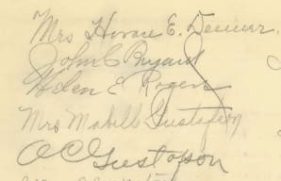 Mrs Horace E. Deemer.
John C Bryant
Helen E Rogers
Mrs Mabell Gustafson
A C Gustafson